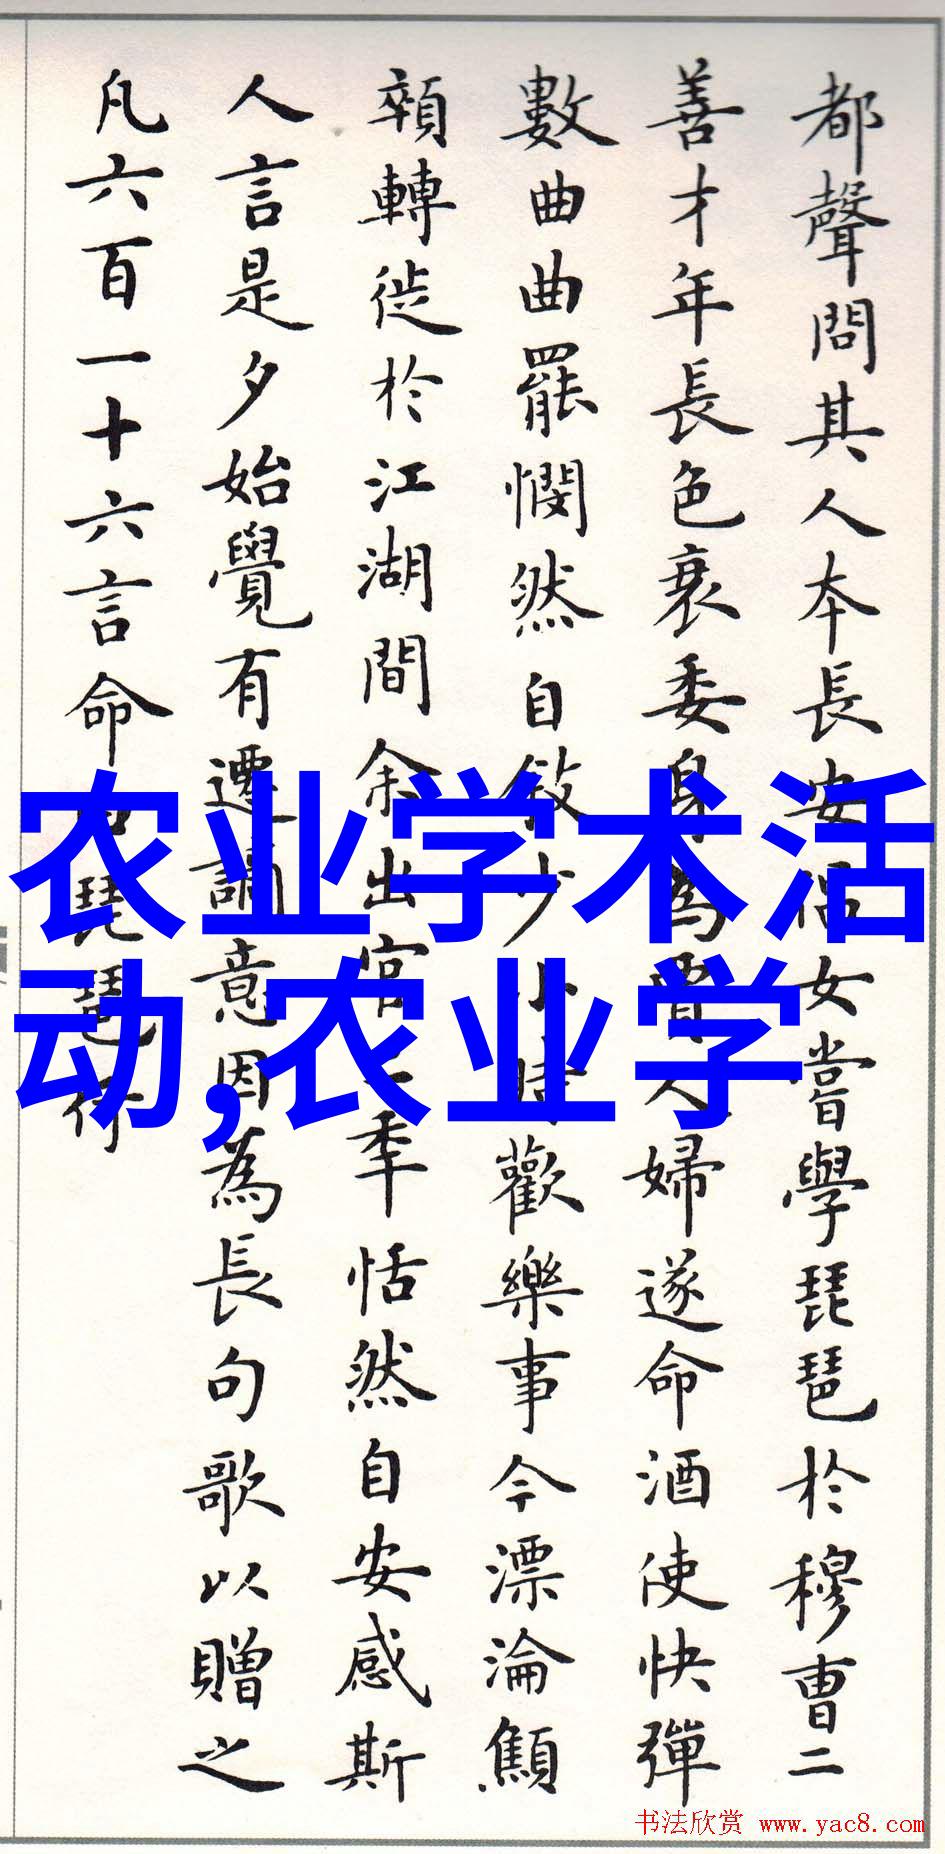 都聲問其人本長安倡女嘗學琵琶於穆曹二
善才年長色衰委身為賈人婦遂命酒使快彈
數曲曲罷憫然自敘少小時歡樂事今漂淪顦
顇轉徙於江湖間余出官二季恬然自安感斯
人言是夕始覺有遷謫意因為長句歌以贈之
凡六百一十六言命曰琵琶行
农业学术活
动,农业学
书法欣赏 www.yac8.com